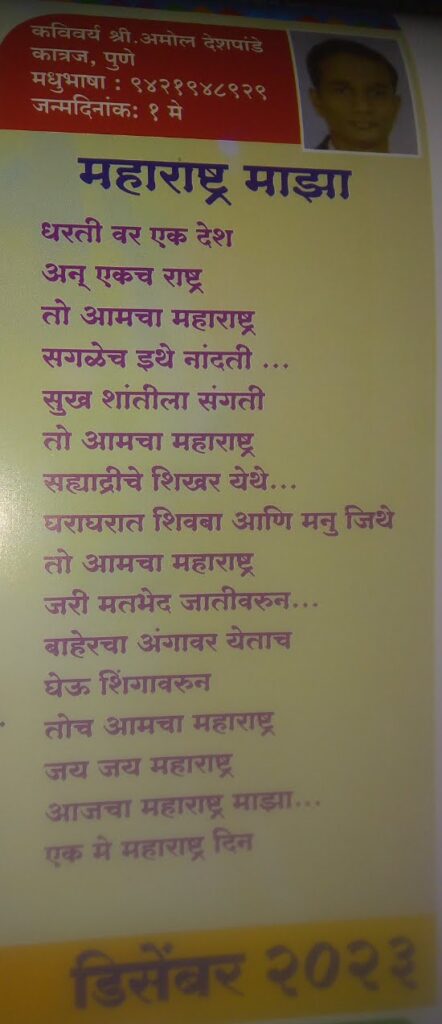 कविवर्य श्री.अमोल देशपांडे
कात्रज, पुणे
मधुभाषा : ९४२१९४८९२९
जन्मदिनांक: १ मे
महाराष्ट्र माझा
धरती वर एक देश
अन् एकच राष्ट्र
तो आमचा महाराष्ट्र
सगळेच इथे नांदती ...
सुख शांतीला संगती
तो आमचा महाराष्ट्र
सह्याद्रीचे शिखर येथे...
घराघरात शिवबा आणि मनु जिथे
तो आमचा महाराष्ट्र
जरी मतभेद जातीवरुन...
बाहेरचा अंगावर येताच
घेऊ शिंगावरुन
तोच आमचा महाराष्ट्र
जय जय महाराष्ट्र
आजचा महाराष्ट्र माझा...
एक मे महाराष्ट्र दिन
डिसेंबर २०२३